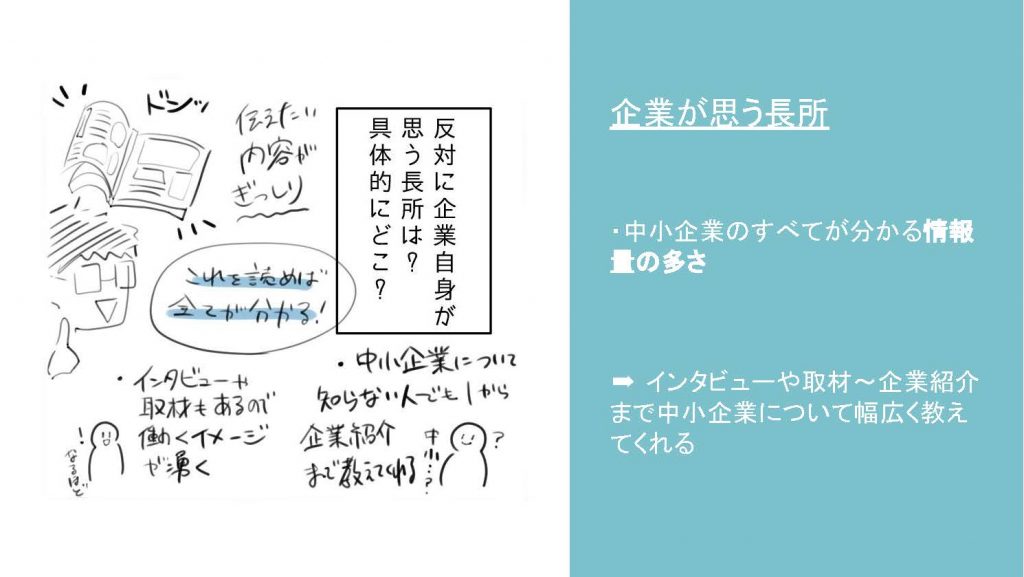 ドンッ
伝えたい
内容が
ぎっしり
反対に企業自身が
思う長所は？
具体的にどこ？
これを読めば
全てが分かる！
・中小企業について
知らない人でも1から
企業紹介
まで教えてくれる
中小…？
？
・インタビューや
取材もあるので
働くイメージ
が湧く
！
なるほど
企業が思う長所
・中小企業のすべてが分かる情報
量の多さ
➡ インタビューや取材～企業紹介
まで中小企業について幅広く教え
てくれる